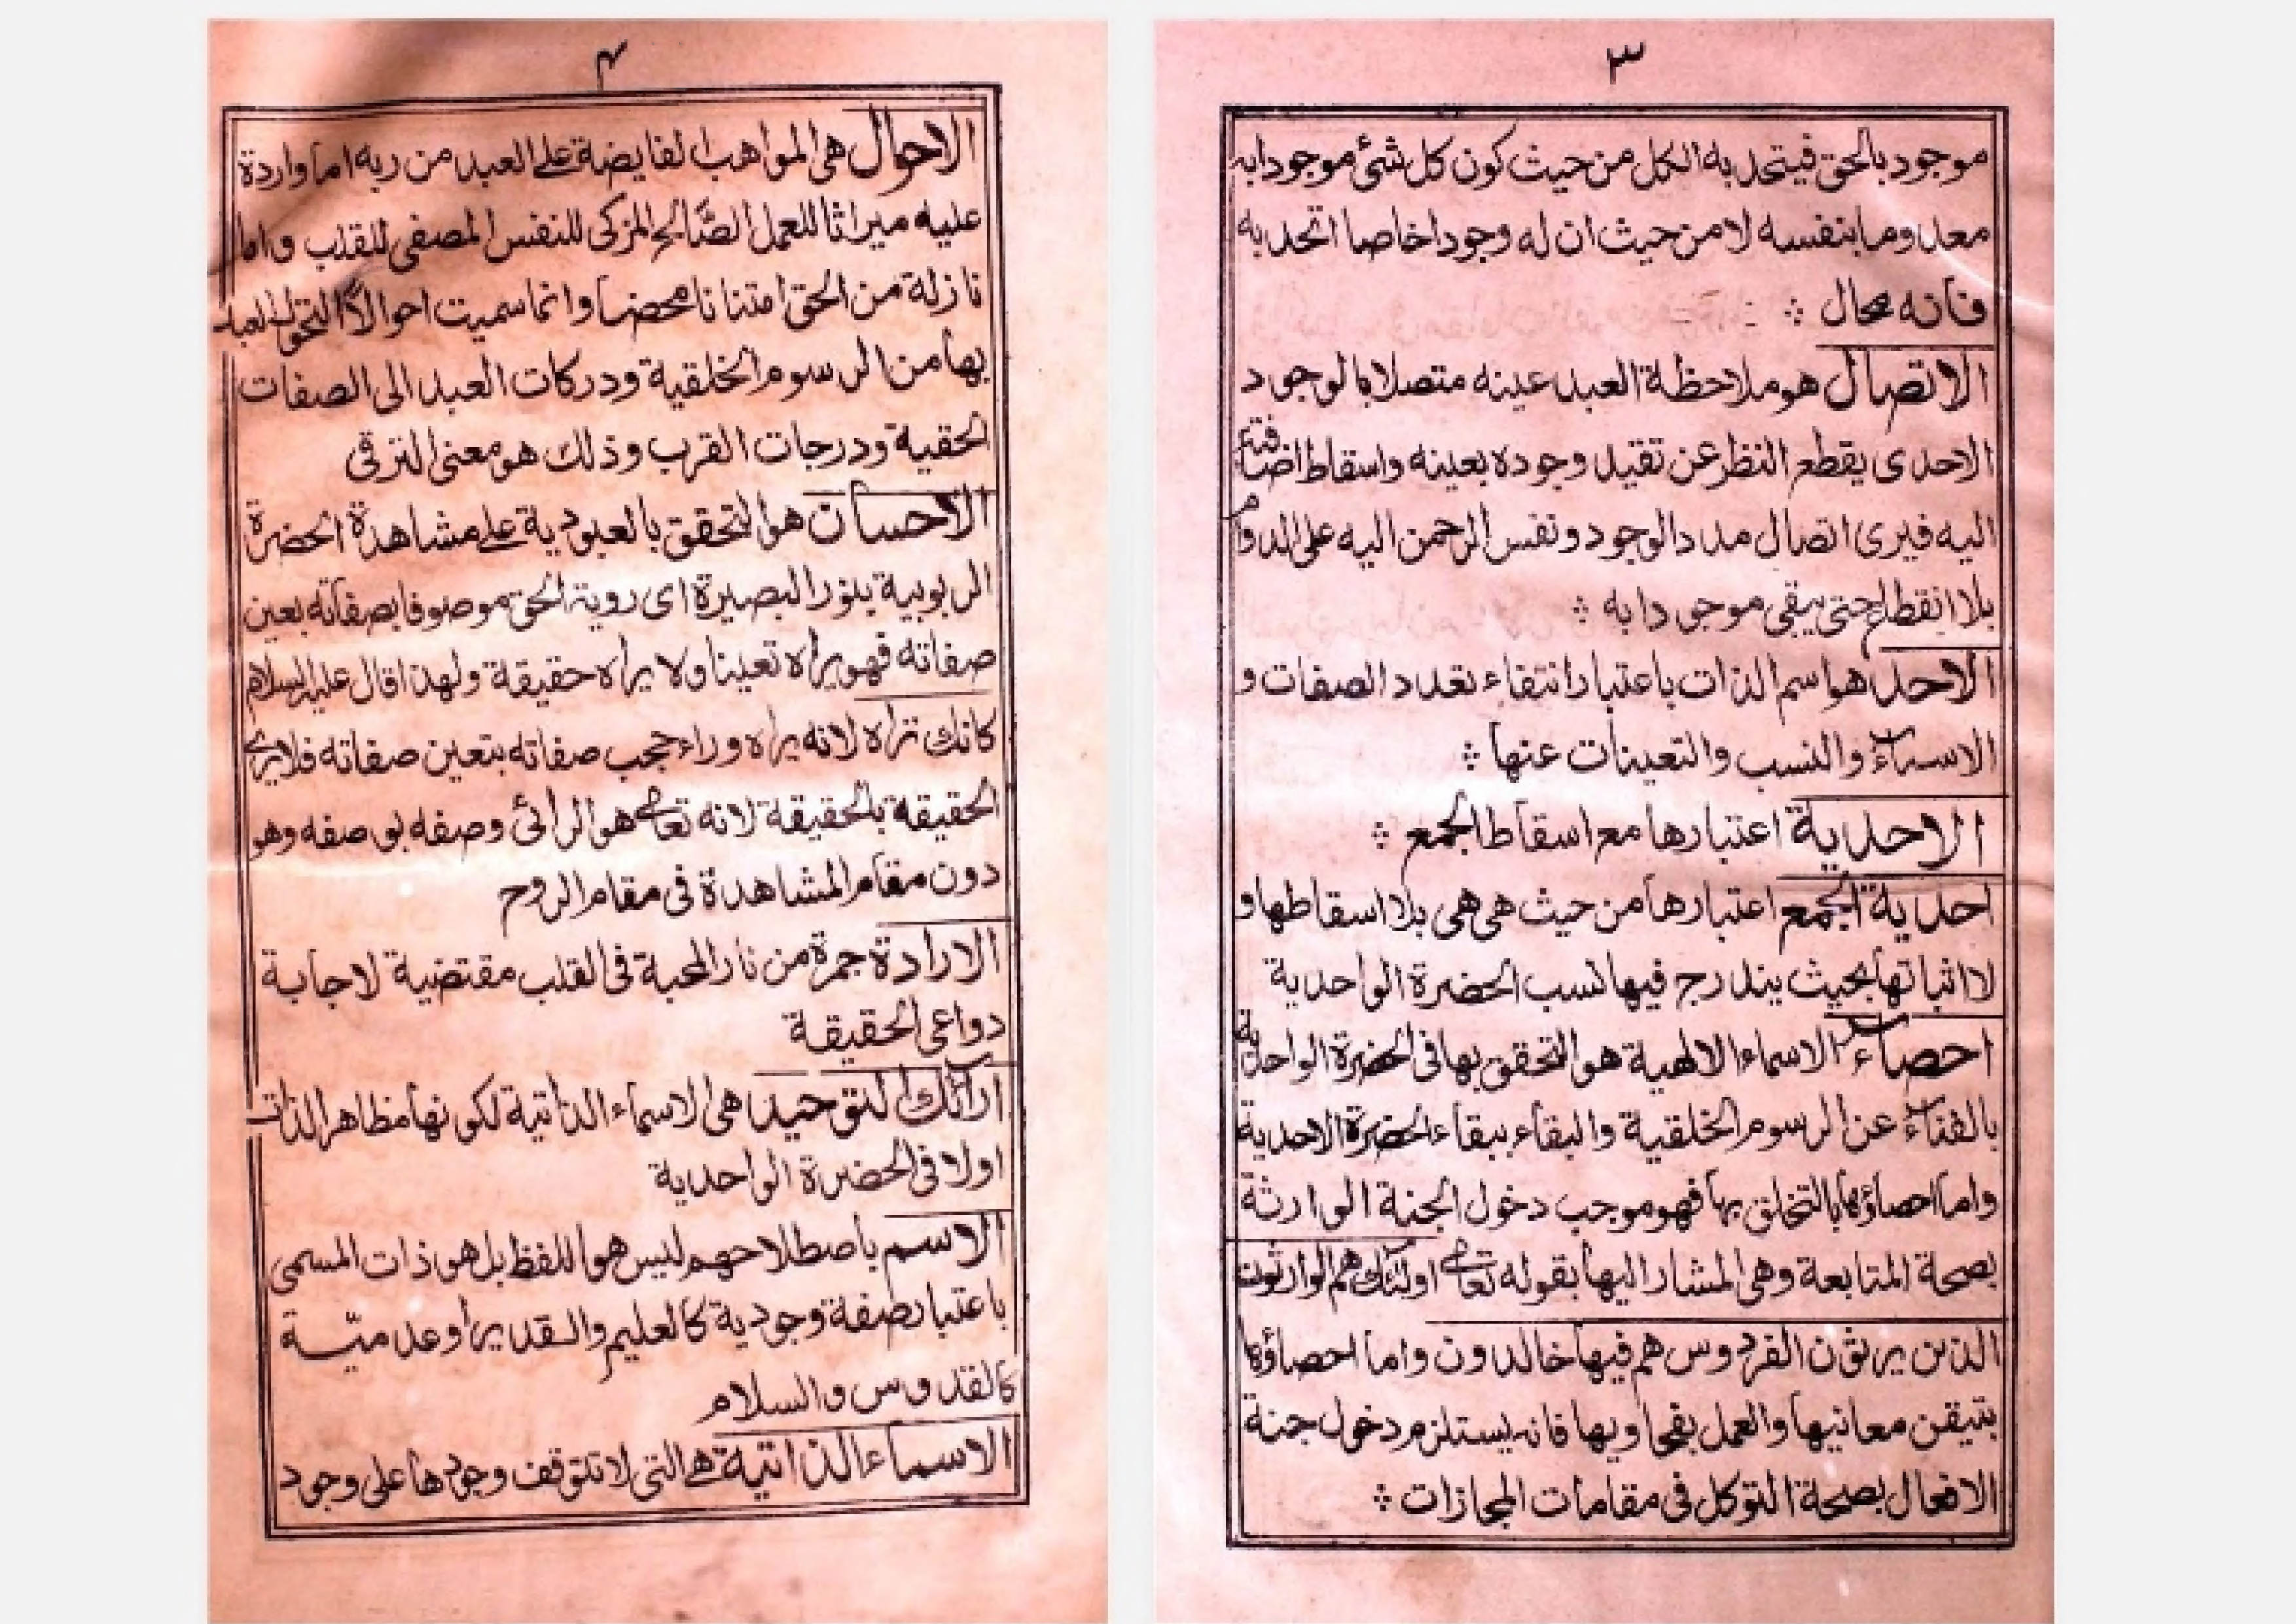 ٣
موجود بالحق فيتحد به الكل من حيث كون كل شئ موجودا به
معدوما بنفسه لا من حيث ان له وجودا خاصا اتحد به
فانه محال
الاتصال هو ملاحظة العبد عينه متصلا بالوجود
الاحدى يقطع النظر عن تقيد وجوده بعينه واسقاط اضافته
اليه فيرى اتصال مدد الوجود ونفس الرحمن اليه على الدوام
بلا انقطاع حتى يبقى موجودا به
الاحد هو اسم الذات باعتبار انتفاء تعدد الصفات و
الاسماء والنسب والتعينات عنها
الاحدية اعتبارها مع اسقاط الجمع
احدية الجمع اعتبارها من حيث هى هى بلا اسقاطها و
لا اثباتها بحيث يندرج فيها نسب الحضرة الواحدية
احصاء الاسماء الالهية هو التحقق بها فى الحضرة الواحدية
بالفناء عن الرسوم الخلقية والبقاء ببقاء الحضرة الاحدية
واما احصاؤها بالتخلق بها فهو موجب دخول الجنة الوارثة
بصحة المتابعة وهى المشار اليها بقوله تعالى اولئك هم الوارثون
الذين يرثون الفردوس هم فيها خالدون واما احصاؤها
بتيقن معانيها والعمل بفحاويها فانه يستلزم دخول جنة
الافعال بصحة التوكل فى مقامات المجازات
٤
الاحوال هى المواهب الفايضة على العبد من ربه اما واردة
عليه ميراثا للعمل الصالح المزكى للنفس المصفى للقلب واما
نازلة من الحق امتنانا محضا وانما سميت احوالا لتحول العبد
بها من الرسوم الخلقية ودركات العبد الى الصفات
الحقية ودرجات القرب وذلك هو معنى الترقى
الاحسان هو التحقق بالعبودية على مشاهدة الحضرة
الربوبية بنور البصيرة اى روية الحق موصوفا بصفاته بعين
صفاته فهو يراه تعينا ولا يراه حقيقة ولهذا قال عليه السلام
كانك تراه لانه يراه وراء حجب صفاته بتعين صفاته فلا يرى
الحقيقة بالحقيقة لانه تعالى هو الرائى وصفه بوصفه وهو
دون مقام المشاهدة فى مقام الروح
الارادة جمرة من نار المحبة فى القلب مقتضية لاجابة
دواعى الحقيقة
ارائك التوحيد هى الاسماء الذاتية لكونها مظاهر الذات
اولا فى الحضرة الواحدية
الاسم باصطلاحهم ليس هو اللفظ بل هو ذات المسمى
باعتبار صفة وجودية كالعليم والقدير او عدميّة
كالقدوس والسلام
الاسماء الذاتية هى التى لا تتوقف وجودها على وجود